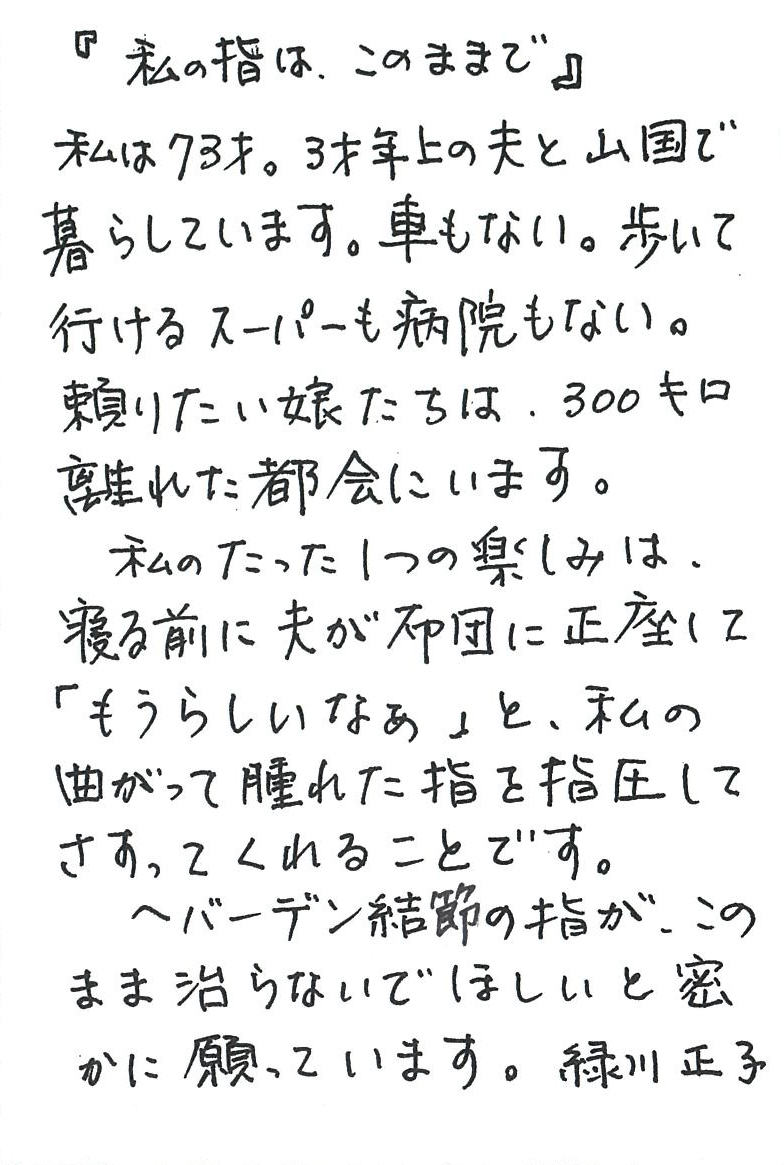 『私の指は、このままで』
私は73才。3才年上の夫と山国で
暮らしています。車もない。歩いて
行けるスーパーも病院もない。
頼りたい娘たちは、300キロ
離れた都会にいます。
私のたった1つの楽しみは、
寝る前に夫が布団に正座して
「もうらしいなぁ」と、私の
曲がって腫れた指を指圧して
さすってくれることです。
ヘバーデン結節の指が、この
まま治らないでほしいと密
かに願っています。緑川正子